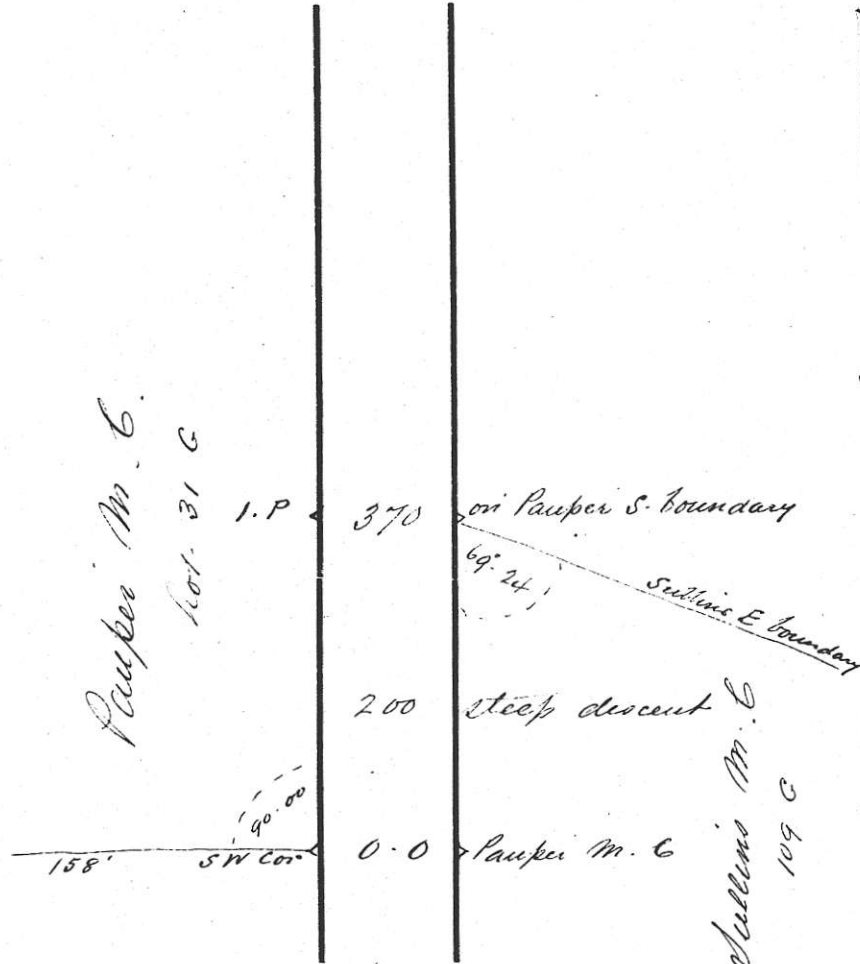 Pauper M. C.
Lot. 31 G
I.P 370 on Pauper S. boundary
69°.24
Sullins E boundary
200 steep descent
Sullins M. C
109 G
90.00
158' SW Cor. 0.0 Pauper M. C